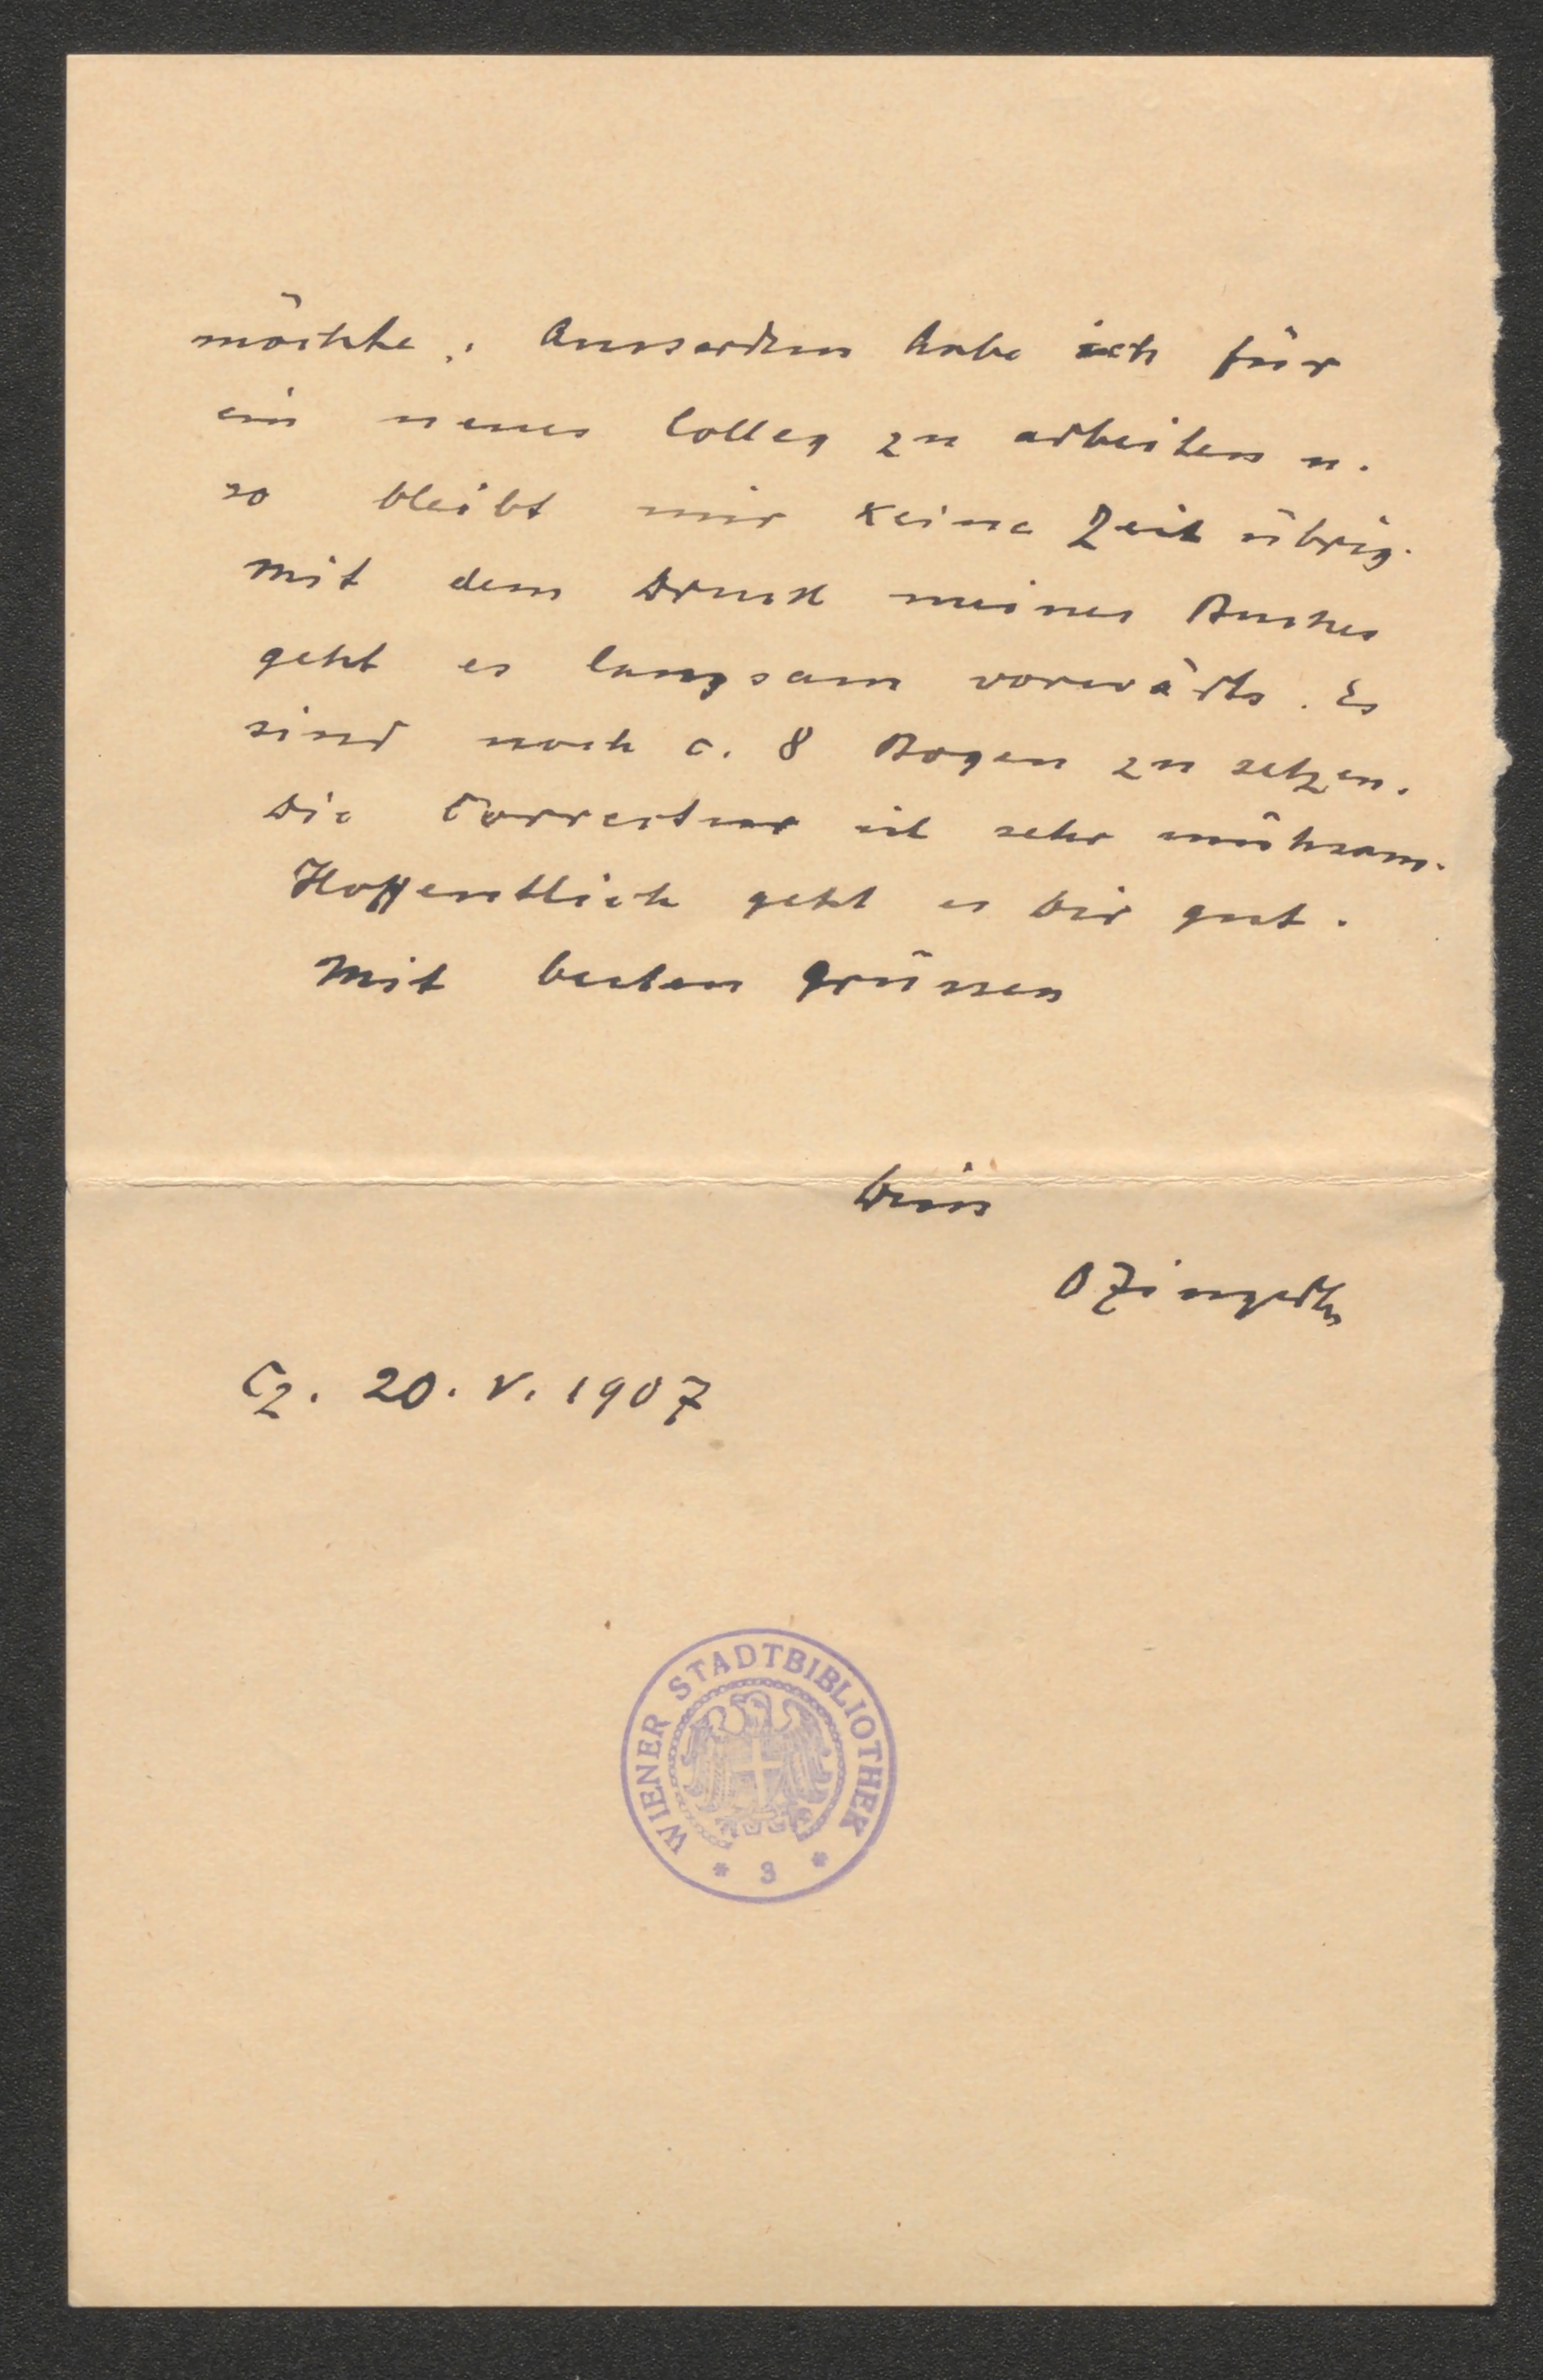 möchte. Ausserdem habe ich für
ein neues Colleg zu arbeiten u.
so bleibt mir keine Zeit übrig.
Mit dem Druck meines Buches
geht es langsam vorwärts. Es
sind noch c. 8 Bogen zu setzen.
Die Correctur ist sehr mühsam.
Hoffentlich geht es Dir gut.
Mit besten Grüssen
Dein
OZingerle
Cz. 20. V. 1907
WIENER STADTBIBLIOTHEK
* 3 *